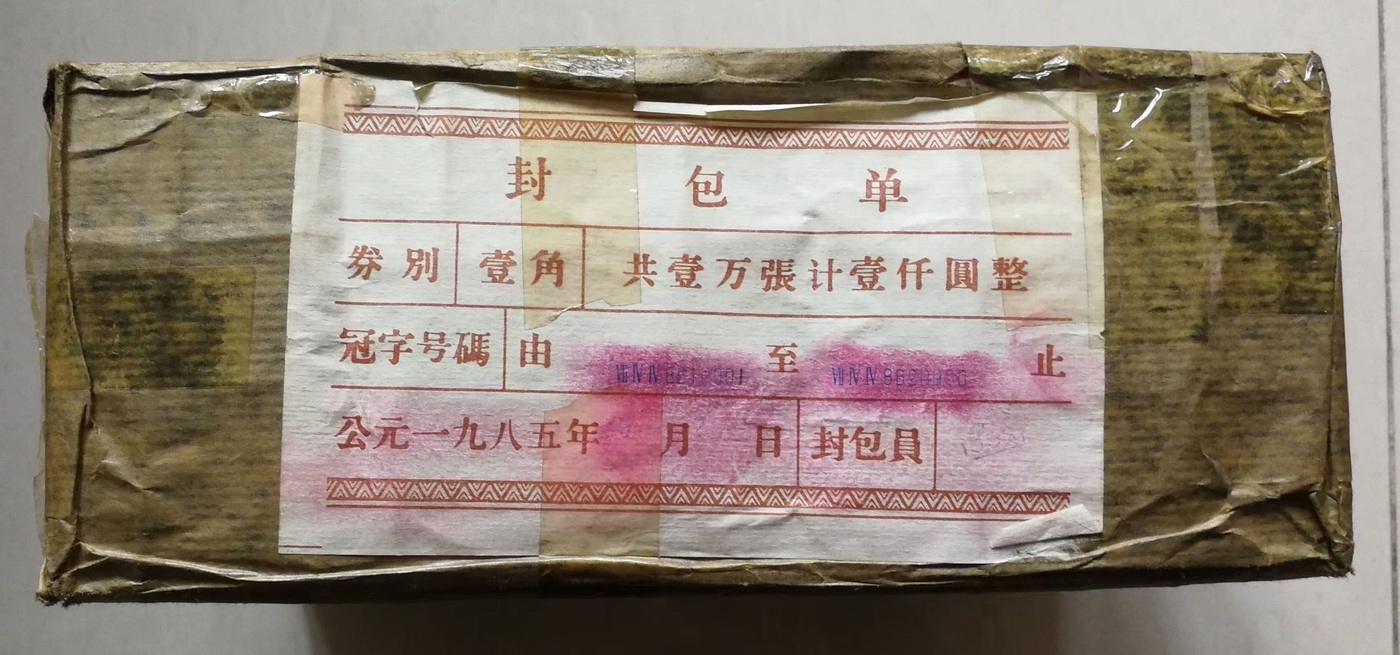 封包单
券別 壹角 共壹万張计壹仟圓整
冠字号碼 由 至 止
公元一九八五年 月 日 封包員